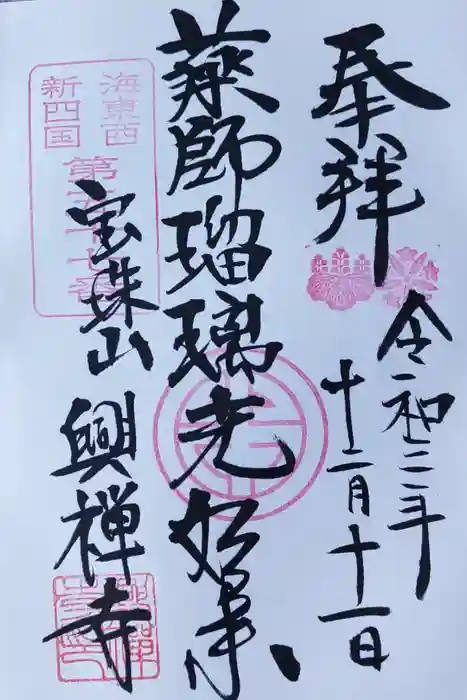 奉拝
令和三年
十二月十一日
薬師瑠璃光如来
海東西
新四国
宝珠山
興禅寺